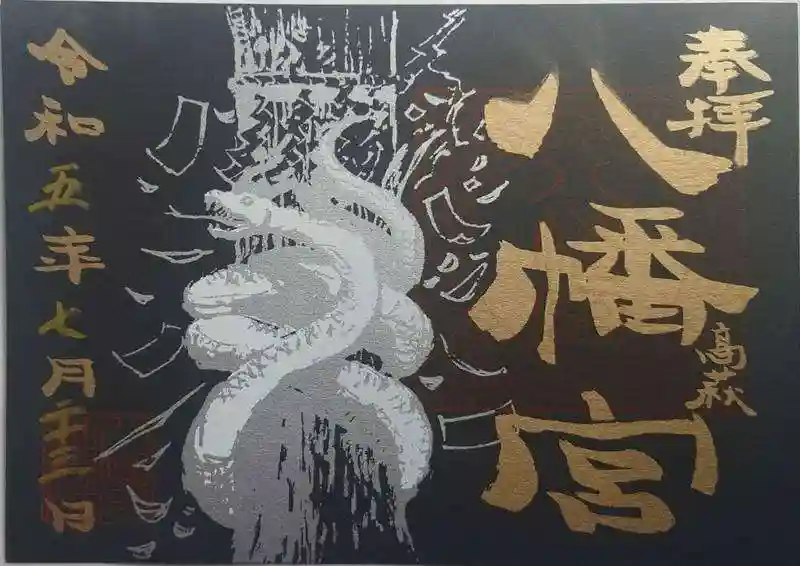 奉拝
八幡宮
高萩
令和五年七月二十三日